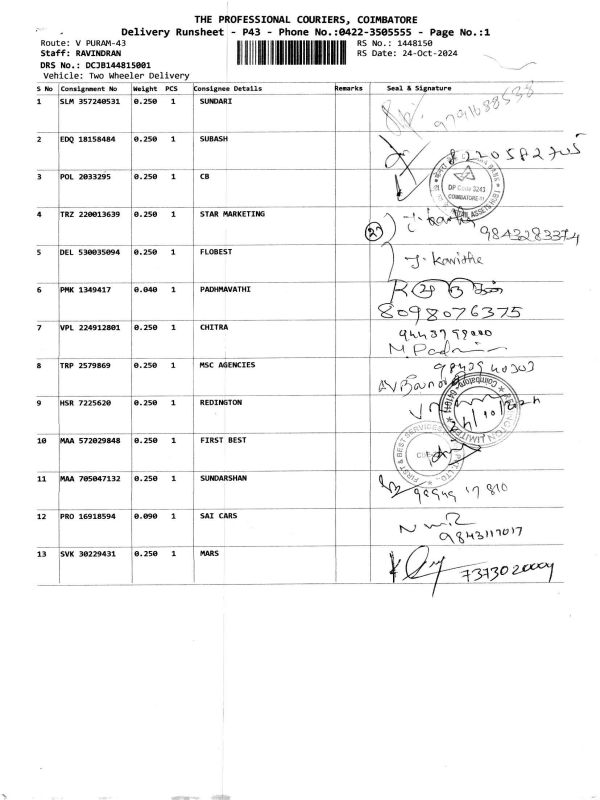 THE PROFESSIONAL COURIERS, COIMBATORE
Delivery Runsheet - P43 - Phone No.:0422-3505555 - Page No.:1
Route: V PURAM-43 RS No.: 1448150
Staff: RAVINDRAN RS Date: 24-Oct-2024
DRS No.: DCJB144815001
Vehicle: Two Wheeler Delivery
S No Consignment No Weight PCS Consignee Details Remarks Seal & Signature
1 SLM 357240531 0.250 1 SUNDARI 9791688538
2 EDQ 18158484 0.250 1 SUBASH
3 POL 2033295 0.250 1 CB DP Code 3243 COIMBATORE
4 TRZ 220013639 0.250 1 STAR MARKETING 9843283374
5 DEL 530035094 0.250 1 FLOBEST J. Kavithe
6 PMK 1349417 0.040 1 PADHMAVATHI
8098076375
7 VPL 224912801 0.250 1 CHITRA
8 TRP 2579869 0.250 1 MSC AGENCIES
9 HSR 7225620 0.250 1 REDINGTON
10 MAA 572029848 0.250 1 FIRST BEST FIRST & BEST SERVICES
11 MAA 705047132 0.250 1 SUNDARSHAN
12 PRO 16918594 0.090 1 SAI CARS
9843117017
13 SVK 30229431 0.250 1 MARS